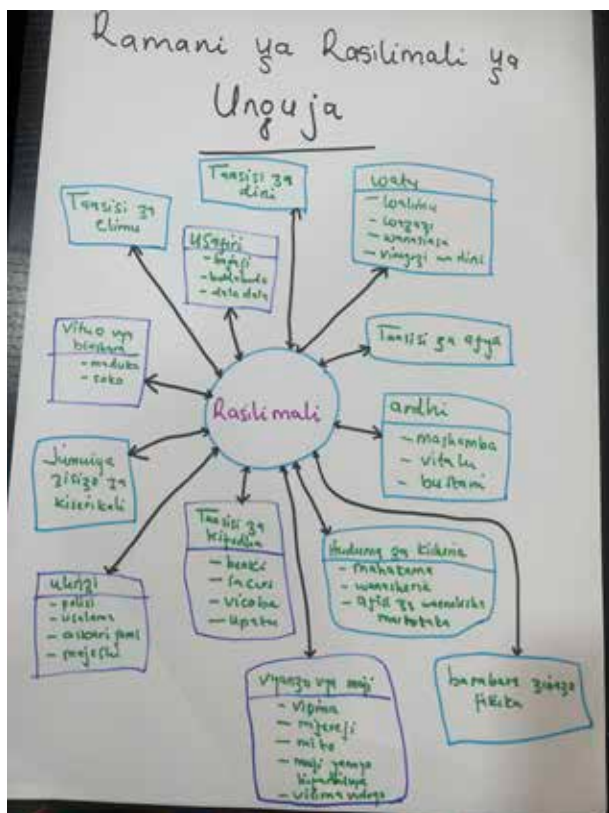 Ramani ya Rasilimali ya
Unguja
Taasisi za
elimu
Taasisi za
dini
watu
- walimu
- wazazi
- wanasiasa
- viongozi wa dini
usafiri
- bajaji
- bodaboda
- dala dala
vituo vya
biashara
- maduka
- soko
Taasisi za afya
Rasilimali
ardhi
- mashamba
- vitalu
- bustani
Jumuiya
zisizo za
kiserikali
Taasisi za
kipedha
- benki
- saccos
- vicoba
- upatu
Huduma za kisheria
- mahakama
- wanasheria
ulinzi
- polisi
- usalama
- askari jamii
- majeshi
vyanzo vya maji
- visima
- mifereji
- mito
- maji yanayo
- visima vidogo
barabara zinazo
fikika